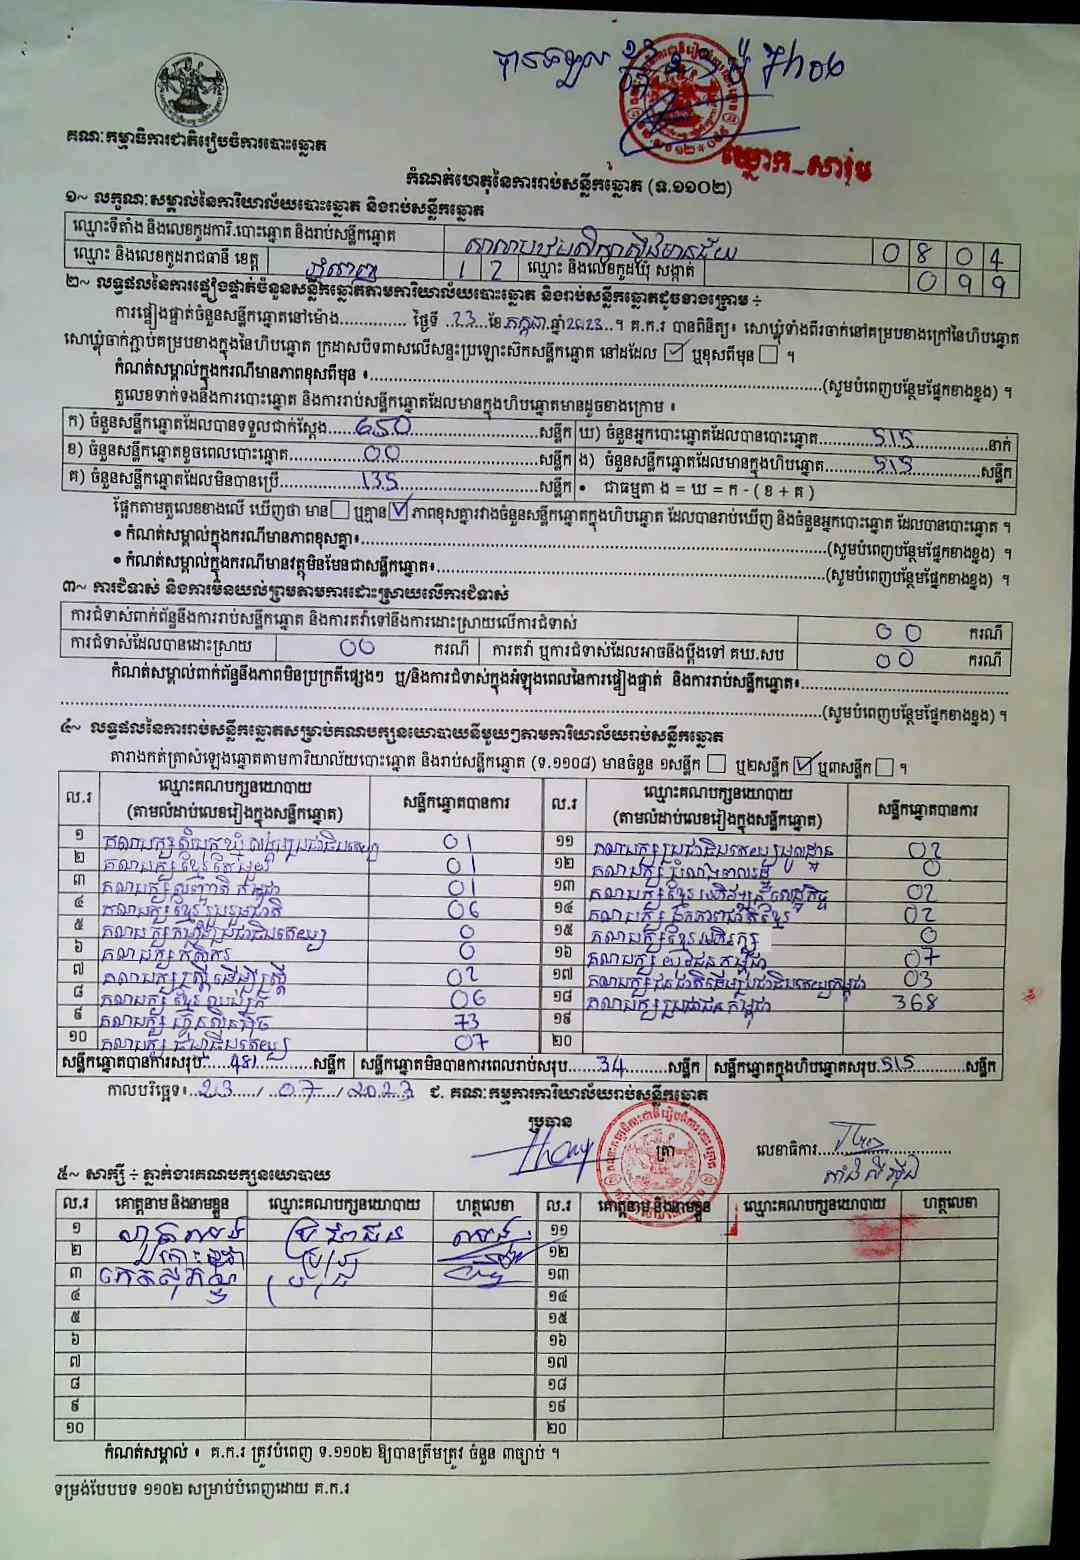 បានទទួល
7h06
គណៈកម្មាធិការជាតិរៀបចំការបោះឆ្នោត
ឃ្លោក-សារ៉ុម
កំណត់ហេតុនៃការរាប់សន្លឹកឆ្នោត (ទ.១១០២)
១~ លក្ខណៈសម្គាល់នៃការិយាល័យបោះឆ្នោត និងរាប់សន្លឹកឆ្នោត
ឈ្មោះទីតាំង និងលេខកូដការិ.បោះឆ្នោត និងរាប់សន្លឹកឆ្នោត 0804
ឈ្មោះ និងលេខកូដរាជធានី ខេត្ត ភ្នំពេញ 12 ឈ្មោះ និងលេខកូដឃុំ សង្កាត់ 099
២~ លទ្ធផលនៃការផ្ទៀងផ្ទាត់ចំនួនសន្លឹកឆ្នោតតាមការិយាល័យបោះឆ្នោត និងរាប់សន្លឹកឆ្នោតដូចខាងក្រោម ÷
ការផ្ទៀងផ្ទាត់ចំនួនសន្លឹកឆ្នោតនៅម៉ោង.............. ថ្ងៃទី ..23...ខែ.កក្កដា.ឆ្នាំ2023..។ គ.ក.រ បានពិនិត្យ៖ សោឃ្លុំទាំងពីរចាក់នៅគម្របខាងក្រៅនៃហិបឆ្នោត
សោឃ្លុំចាក់ភ្ជាប់គម្របខាងក្នុងនៃហិបឆ្នោត ក្រដាសបិទពាសលើសន្ទះប្រឡោះស៊កសន្លឹកឆ្នោត នៅដដែល ☑ ឬខុសពីមុន ☐ ។
កំណត់សម្គាល់ក្នុងករណីមានភាពខុសពីមុន ៖..........(សូមបំពេញបន្ថែមផ្នែកខាងខ្នង) ។
តួលេខទាក់ទងនឹងការបោះឆ្នោត និងការរាប់សន្លឹកឆ្នោតដែលមានក្នុងហិបឆ្នោតមានដូចខាងក្រោម ៖
ក) ចំនួនសន្លឹកឆ្នោតដែលបានទទួលជាក់ស្តែង......650......សន្លឹក ឃ) ចំនួនអ្នកបោះឆ្នោតដែលបានបោះឆ្នោត......515......នាក់
ខ) ចំនួនសន្លឹកឆ្នោតខូចពេលបោះឆ្នោត......00......សន្លឹក ង) ចំនួនសន្លឹកឆ្នោតដែលមានក្នុងហិបឆ្នោត......515......សន្លឹក
គ) ចំនួនសន្លឹកឆ្នោតដែលមិនបានប្រើ......135......សន្លឹក • ជាធម្មតា ង = ឃ = ក - ( ខ + គ )
ផ្អែកតាមតួលេខខាងលើ ឃើញថា មាន ☐ ឬគ្មាន ☑ ភាពខុសគ្នារវាងចំនួនសន្លឹកឆ្នោតក្នុងហិបឆ្នោត ដែលបានរាប់ឃើញ និងចំនួនអ្នកបោះឆ្នោត ដែលបានបោះឆ្នោត ។
• កំណត់សម្គាល់ក្នុងករណីមានភាពខុសគ្នា៖..........(សូមបំពេញបន្ថែមផ្នែកខាងខ្នង) ។
• កំណត់សម្គាល់ក្នុងករណីមានវត្ថុមិនមែនជាសន្លឹកឆ្នោត៖..........(សូមបំពេញបន្ថែមផ្នែកខាងខ្នង) ។
៣~ ការជំទាស់ និងការមិនយល់ព្រមតាមការដោះស្រាយលើការជំទាស់
ការជំទាស់ពាក់ព័ន្ធនឹងការរាប់សន្លឹកឆ្នោត និងការតវ៉ាទៅនឹងការដោះស្រាយលើការជំទាស់ 00 ករណី
ការជំទាស់ដែលបានដោះស្រាយ 00 ករណី ការតវ៉ា ឬការជំទាស់ដែលអាចនឹងប្តឹងទៅ គឃ.សប 00 ករណី
កំណត់សម្គាល់ពាក់ព័ន្ធនឹងភាពមិនប្រក្រតីផ្សេងៗ ឬ/និងការជំទាស់ក្នុងអំឡុងពេលនៃការផ្ទៀងផ្ទាត់ និងការរាប់សន្លឹកឆ្នោត៖..........
..........(សូមបំពេញបន្ថែមផ្នែកខាងខ្នង) ។
៤~ លទ្ធផលនៃការរាប់សន្លឹកឆ្នោតសម្រាប់គណបក្សនយោបាយនីមួយៗតាមការិយាល័យរាប់សន្លឹកឆ្នោត
តារាងកត់ត្រាសំឡេងឆ្នោតតាមការិយាល័យបោះឆ្នោត និងរាប់សន្លឹកឆ្នោត (ទ.១១០៨) មានចំនួន ១សន្លឹក ☐ ឬ២សន្លឹក ☑ ឬ៣សន្លឹក ☐ ។
ល.រ ឈ្មោះគណបក្សនយោបាយ (តាមលំដាប់លេខរៀងក្នុងសន្លឹកឆ្នោត) សន្លឹកឆ្នោតបានការ ល.រ ឈ្មោះគណបក្សនយោបាយ (តាមលំដាប់លេខរៀងក្នុងសន្លឹកឆ្នោត) សន្លឹកឆ្នោតបានការ
១ គណបក្សសំបុកឃ្មុំសង្គមប្រជាធិបតេយ្យ 01 ១១ គណបក្សប្រជាធិបតេយ្យមូលដ្ឋាន 02
២ គណបក្សខ្មែរតែមួយ 01 ១២ 0
៣ គណបក្ស កម្ពុជា 01 ១៣ គណបក្សខ្មែរអភិវឌ្ឍន៍សេដ្ឋកិច្ច 02
៤ គណបក្សខ្មែររួបរួមជាតិ 06 ១៤ គណបក្សឯកភាពជាតិខ្មែរ 02
៥ គណបក្សកម្លាំងប្រជាធិបតេយ្យ 0 ១៥ គណបក្សខ្មែរអភិរក្ស 0
៦ គណបក្សកសិករ 0 ១៦ គណបក្សយុវជនកម្ពុជា 07
៧ គណបក្សស្ត្រីដើម្បីស្ត្រី 02 ១៧ គណបក្សជនជាតិដើមប្រជាធិបតេយ្យកម្ពុជា 03
៨ គណបក្សខ្មែរឈប់ក្រ 06 ១៨ គណបក្សប្រជាជនកម្ពុជា 368
៩ គណបក្សហ៊្វុនស៊ិនប៉ិច 73 ១៩
១០ គណបក្សប្រជាធិបតេយ្យ 07 ២០
សន្លឹកឆ្នោតបានការសរុប......481......សន្លឹក សន្លឹកឆ្នោតមិនបានការពេលរាប់សរុប......34......សន្លឹក សន្លឹកឆ្នោតក្នុងហិបឆ្នោតសរុប.515......សន្លឹក
កាលបរិច្ឆេទ៖..23..../..07..../2023 ជ. គណៈកម្មការការិយាល័យរាប់សន្លឹកឆ្នោត
ប្រធាន
ត្រា លេខាធិការ..........
៥~ សាក្សី ÷ ភ្នាក់ងារគណបក្សនយោបាយ
ល.រ គោត្តនាម និងនាមខ្លួន ឈ្មោះគណបក្សនយោបាយ ហត្ថលេខា ល.រ គោត្តនាម និងនាមខ្លួន ឈ្មោះគណបក្សនយោបាយ ហត្ថលេខា
១ ប្រជាជន ១១
២ ១២
៣ ១៣
៤ ១៤
៥ ១៥
៦ ១៦
៧ ១៧
៨ ១៨
៩ ១៩
១០ ២០
កំណត់សម្គាល់ ៖ គ.ក.រ ត្រូវបំពេញ ទ.១១០២ ឱ្យបានត្រឹមត្រូវ ចំនួន ៣ច្បាប់ ។
ទម្រង់បែបបទ ១១០២ សម្រាប់បំពេញដោយ គ.ក.រ